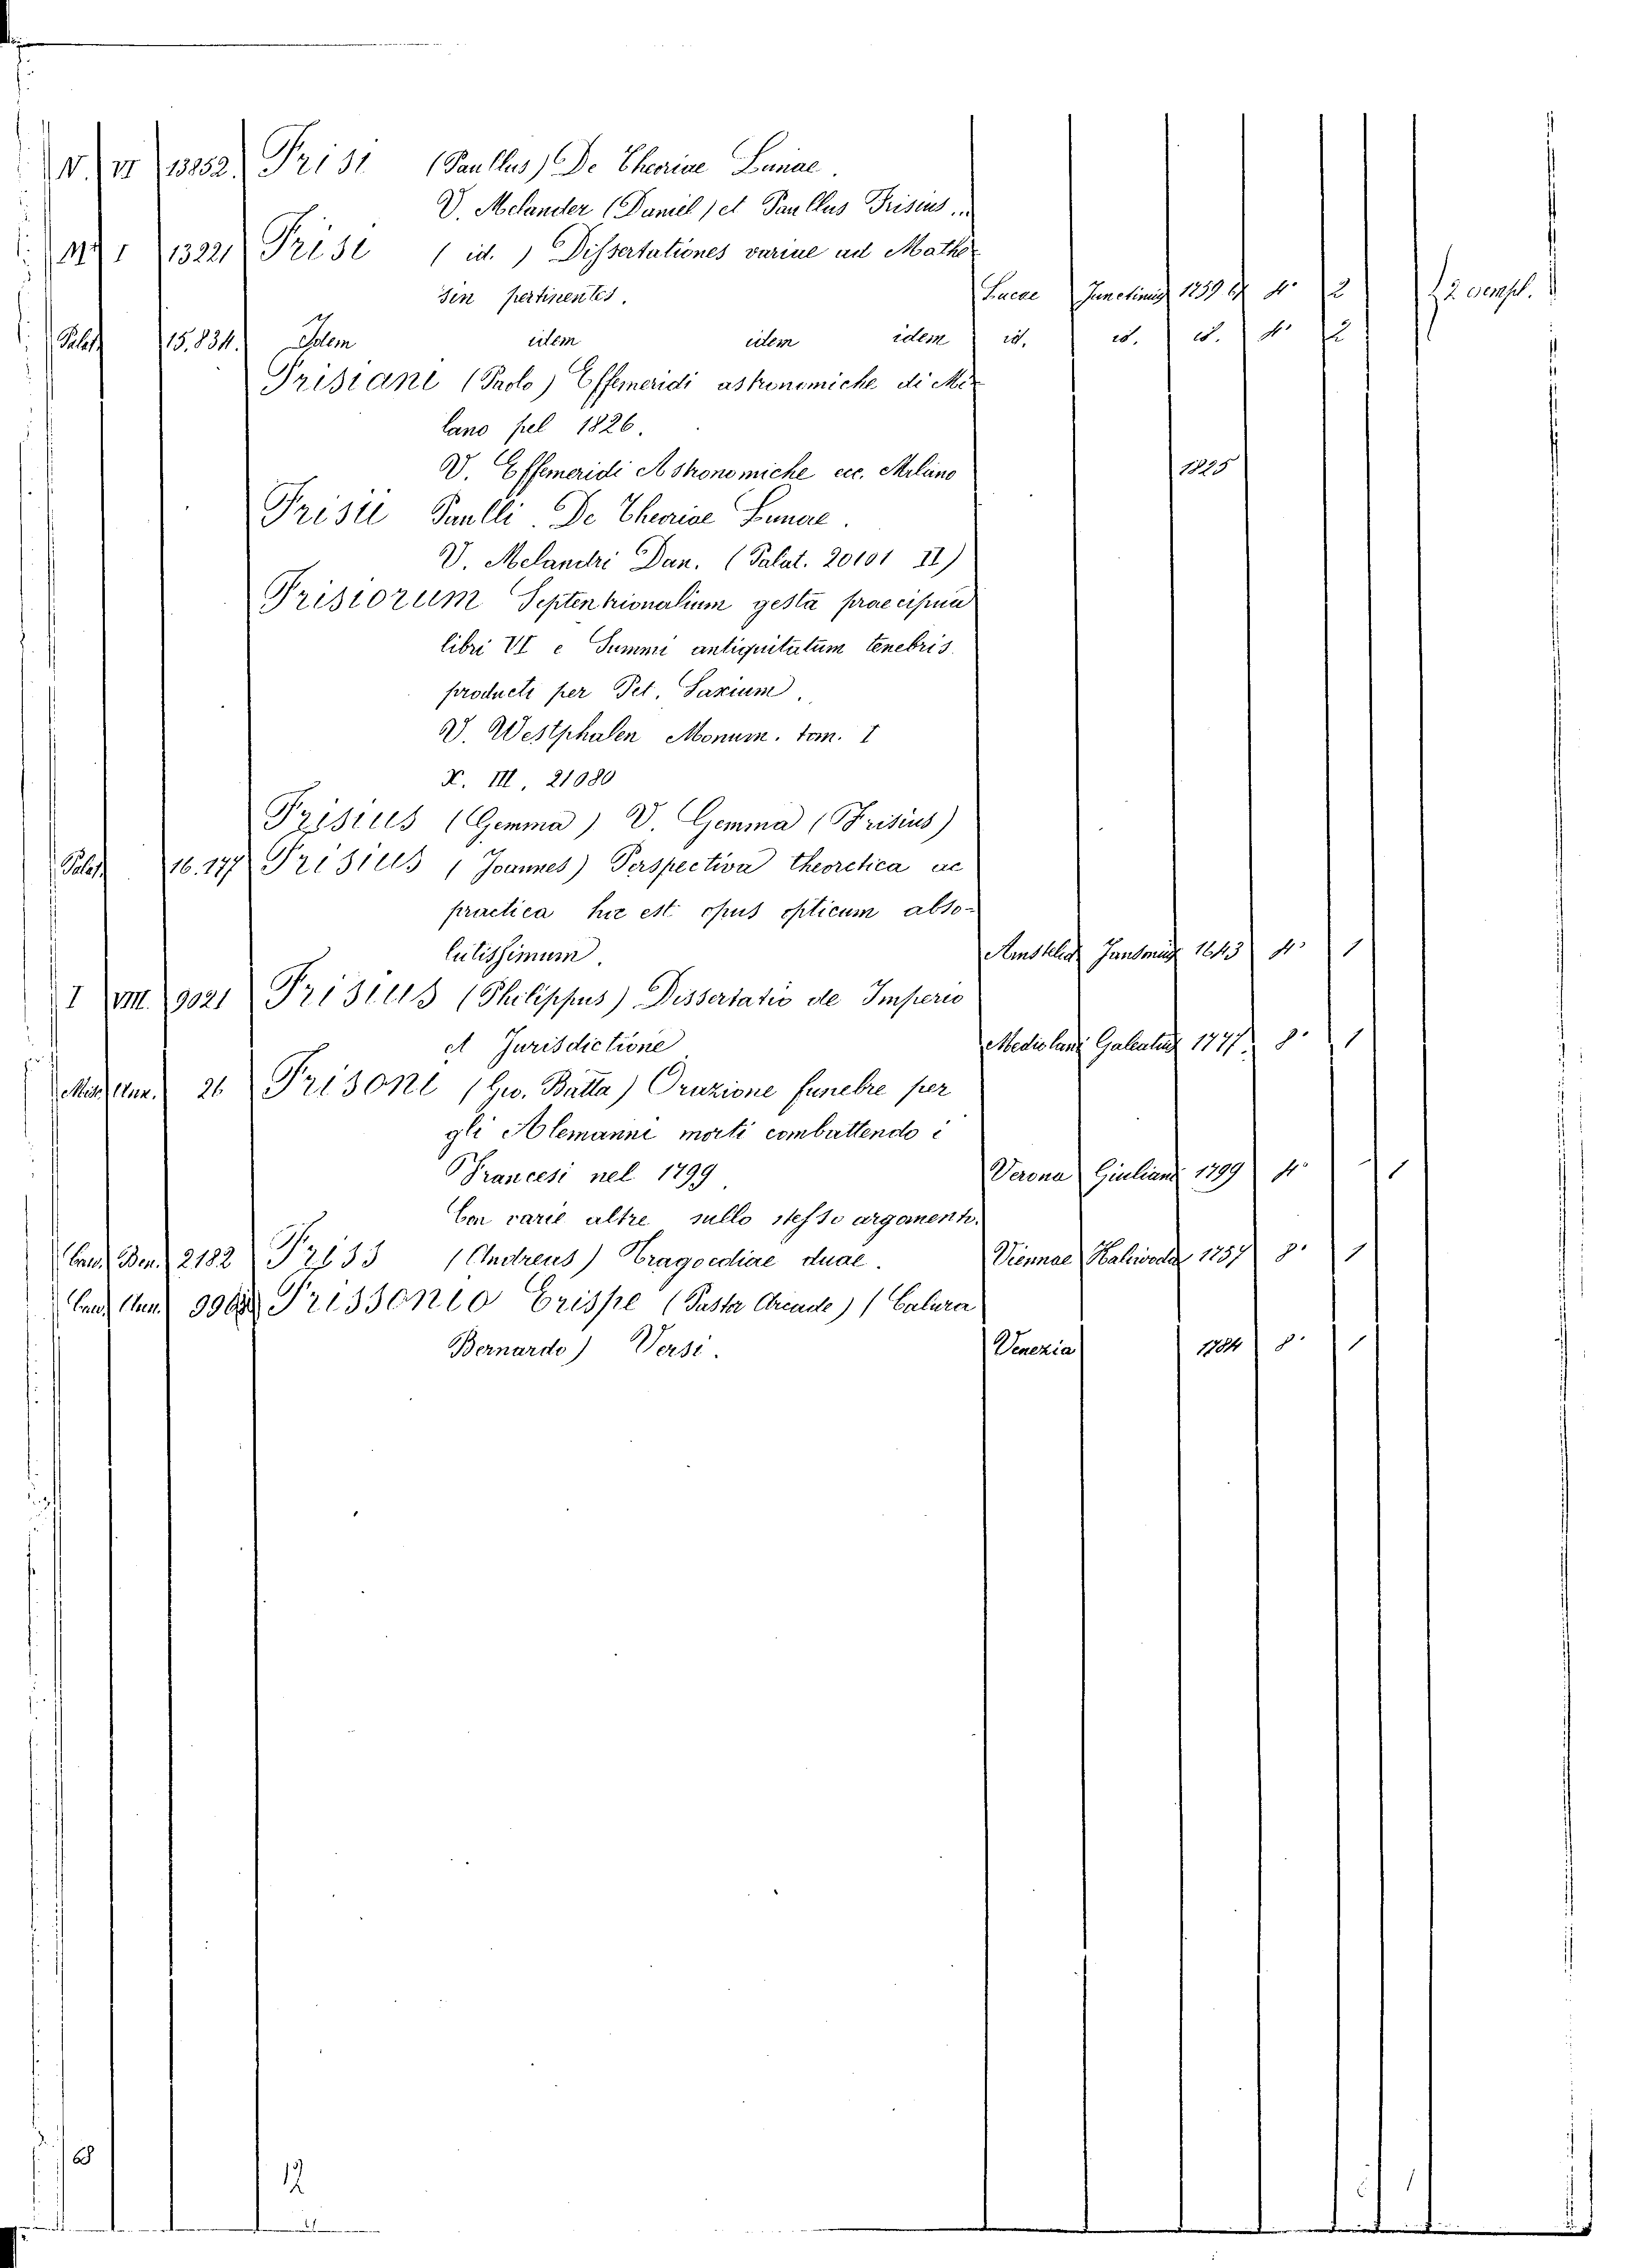 V. VI 13852. Frisi (Paullus) De Theoriae Lunae.
V. Melander (Daniel) et Paullus Frisius..
M I 13221 Frisi (id.) Dissertationes variae ad Mathe-
sin pertinentes. Lucae Junctinius 1759 4° 2 2 esempl.
Palat. 15.834. Idem idem idem idem id. id. id. 4° 2
Frisiani (Paolo) Effemeridi astronomiche di Mi-
lano pel 1826.
V. Effemeridi Astronomiche ecc. Milano 1825
Frisii Paulli. De Theoriae Lunae.
V. Melandri Dan. (Palat. 20101 II)
Frisiorum Septentrionalium gesta praecipua
libri VI e Summi antiquitatum tenebris
producti per Pet. Saxium.
V. Westphalen Monum. tom. I
X. III, 21080
Frisius (Gemma) V. Gemma (Frisius)
Palat. 16.177 Frisius (Joannes) Perspectiva theoretica ac
practica hic est opus opticum abso-
lutissimum. Amstelod. 1643 4° 1
I VIII. 9021 Frisius (Philippus) Dissertatio de Imperio
et Jurisdictione Mediolani Galeatius 1777. 8° 1
Misc. Ann. 26 Frisoni (Gio. Batta) Orazione funebre per
gli Alemanni morti combattendo i
Francesi nel 1799. Verona Giuliani 1799 4° 1
Con varie altre sullo stesso argoment.
Cand. Ben. 2182 Friss (Andreas) Tragoediae duae. Viennae Kaliwoda 1757 8° 1
Cand. Ann. Frissonio Crispe (Pastor Arcade) (Calura
Bernardo) Versi. Venezia 1784 8° 1
8
12
1